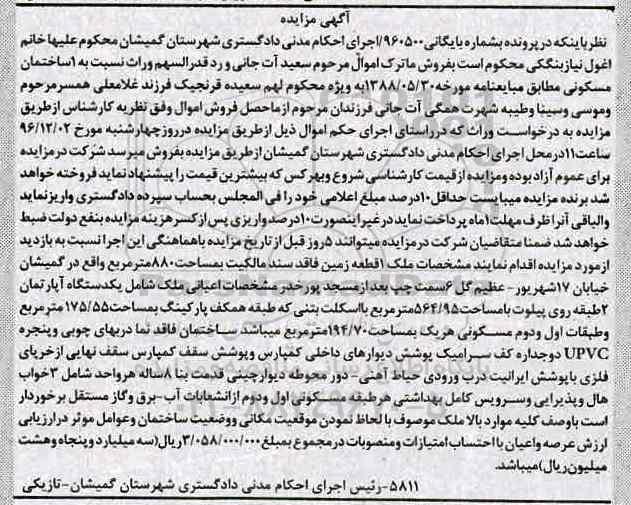 آگهی مزایده
نظر باینکه در پرونده بشماره بایگانی ۹۶۰۵۰۰/اجرای احکام مدنی دادگستری شهرستان گمیشان محکوم علیها خانم
اغول نیاز بنگکی محکوم است بفروش ماترک اموال مرحوم سعید آت جانی و رد قدرالسهم وراث نسبت به ۱ساختمان
مسکونی مطابق مبایعنامه مورخه۱۳۸۸/۰۵/۳۰به ویژه محکوم لهم سعیده قرنجیک فرزند غلامعلی همسر مرحوم
وموسی وسینا وطیبه شهرت همگی آت جانی فرزندان مرحوم از ماحصل فروش اموال وفق نظریه کارشناس از طریق
مزایده به درخواست وراث که در راستای اجرای حکم اموال ذیل از طریق مزایده در روز چهارشنبه مورخ ۹۶/۱۲/۰۲
ساعت۱۱در محل اجرای احکام مدنی دادگستری شهرستان گمیشان از طریق مزایده بفروش میرسد شرکت در مزایده
برای عموم آزاد بوده و مزایده از قیمت کارشناسی شروع وبهر کس که بیشترین قیمت را پیشنهاد نماید فروخته خواهد
شد برنده مزایده میبایست حداقل۱۰درصد مبلغ اعلامی خود را فی المجلس بحساب سپرده دادگستری واریز نماید
والباقی آنرا ظرف مهلت۱ماه پرداخت نماید در غیر اینصورت۱۰درصد واریزی پس از کسر هزینه مزایده بنفع دولت ضبط
خواهد شد ضمنا متقاضیان شرکت در مزایده میتوانند ۵روز قبل از تاریخ مزایده با هماهنگی این اجرا نسبت به بازدید
از مورد مزایده اقدام نمایند مشخصات ملک ۱قطعه زمین فاقد سند مالکیت بمساحت۸۸۰مترمربع واقع در گمیشان
خیابان ۱۷شهریور- عظیم گل ۶سمت چپ بعد از مسجد پورخدر مشخصات اعیانی ملک شامل یکدستگاه آپارتمان
۲طبقه روی پیلوت بامساحت۵۶۴/۹۵مترمربع بااسکلت بتنی که طبقه همکف پارکینگ بمساحت۱۷۵/۵۵ مترمربع
وطبقات اول ودوم مسکونی هریک بمساحت۱۹۴/۷۰مترمربع میباشد ساختمان فاقد نما دربهای چوبی و پنجره
UPVC دوجداره کف سرامیک پوشش دیوارهای داخلی کمپارس وپوشش سقف کمپارس سقف نهایی از خرپای
فلزی با پوشش ایرانیت درب ورودی حیاط آهنی- دور محوطه دیوارچینی قدمت بنا ۸ساله هرواحد شامل ۳خواب
هال و پذیرایی وسرویس کامل بهداشتی هرطبقه مسکونی اول ودوم از انشعابات آب-برق وگاز مستقل برخوردار
است باوصف کلیه موارد بالا ملک موصوف با لحاظ نمودن موقعیت مکانی ووضعیت ساختمان وعوامل موثر درارزیابی
ارزش عرصه واعیان با احتساب امتیازات ومنصوبات در مجموع بمبلغ۳/۰۵۸/۰۰۰/۰۰۰ریال(سه میلیارد و پنجاه وهشت
میلیون ریال)میباشد.
۵۸۱۱-رئیس اجرای احکام مدنی دادگستری شهرستان گمیشان-تازیکی